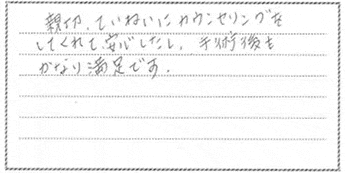 親切、ていねいにカウンセリングを
してくれて、安心したし、手術後も
かなり満足です。